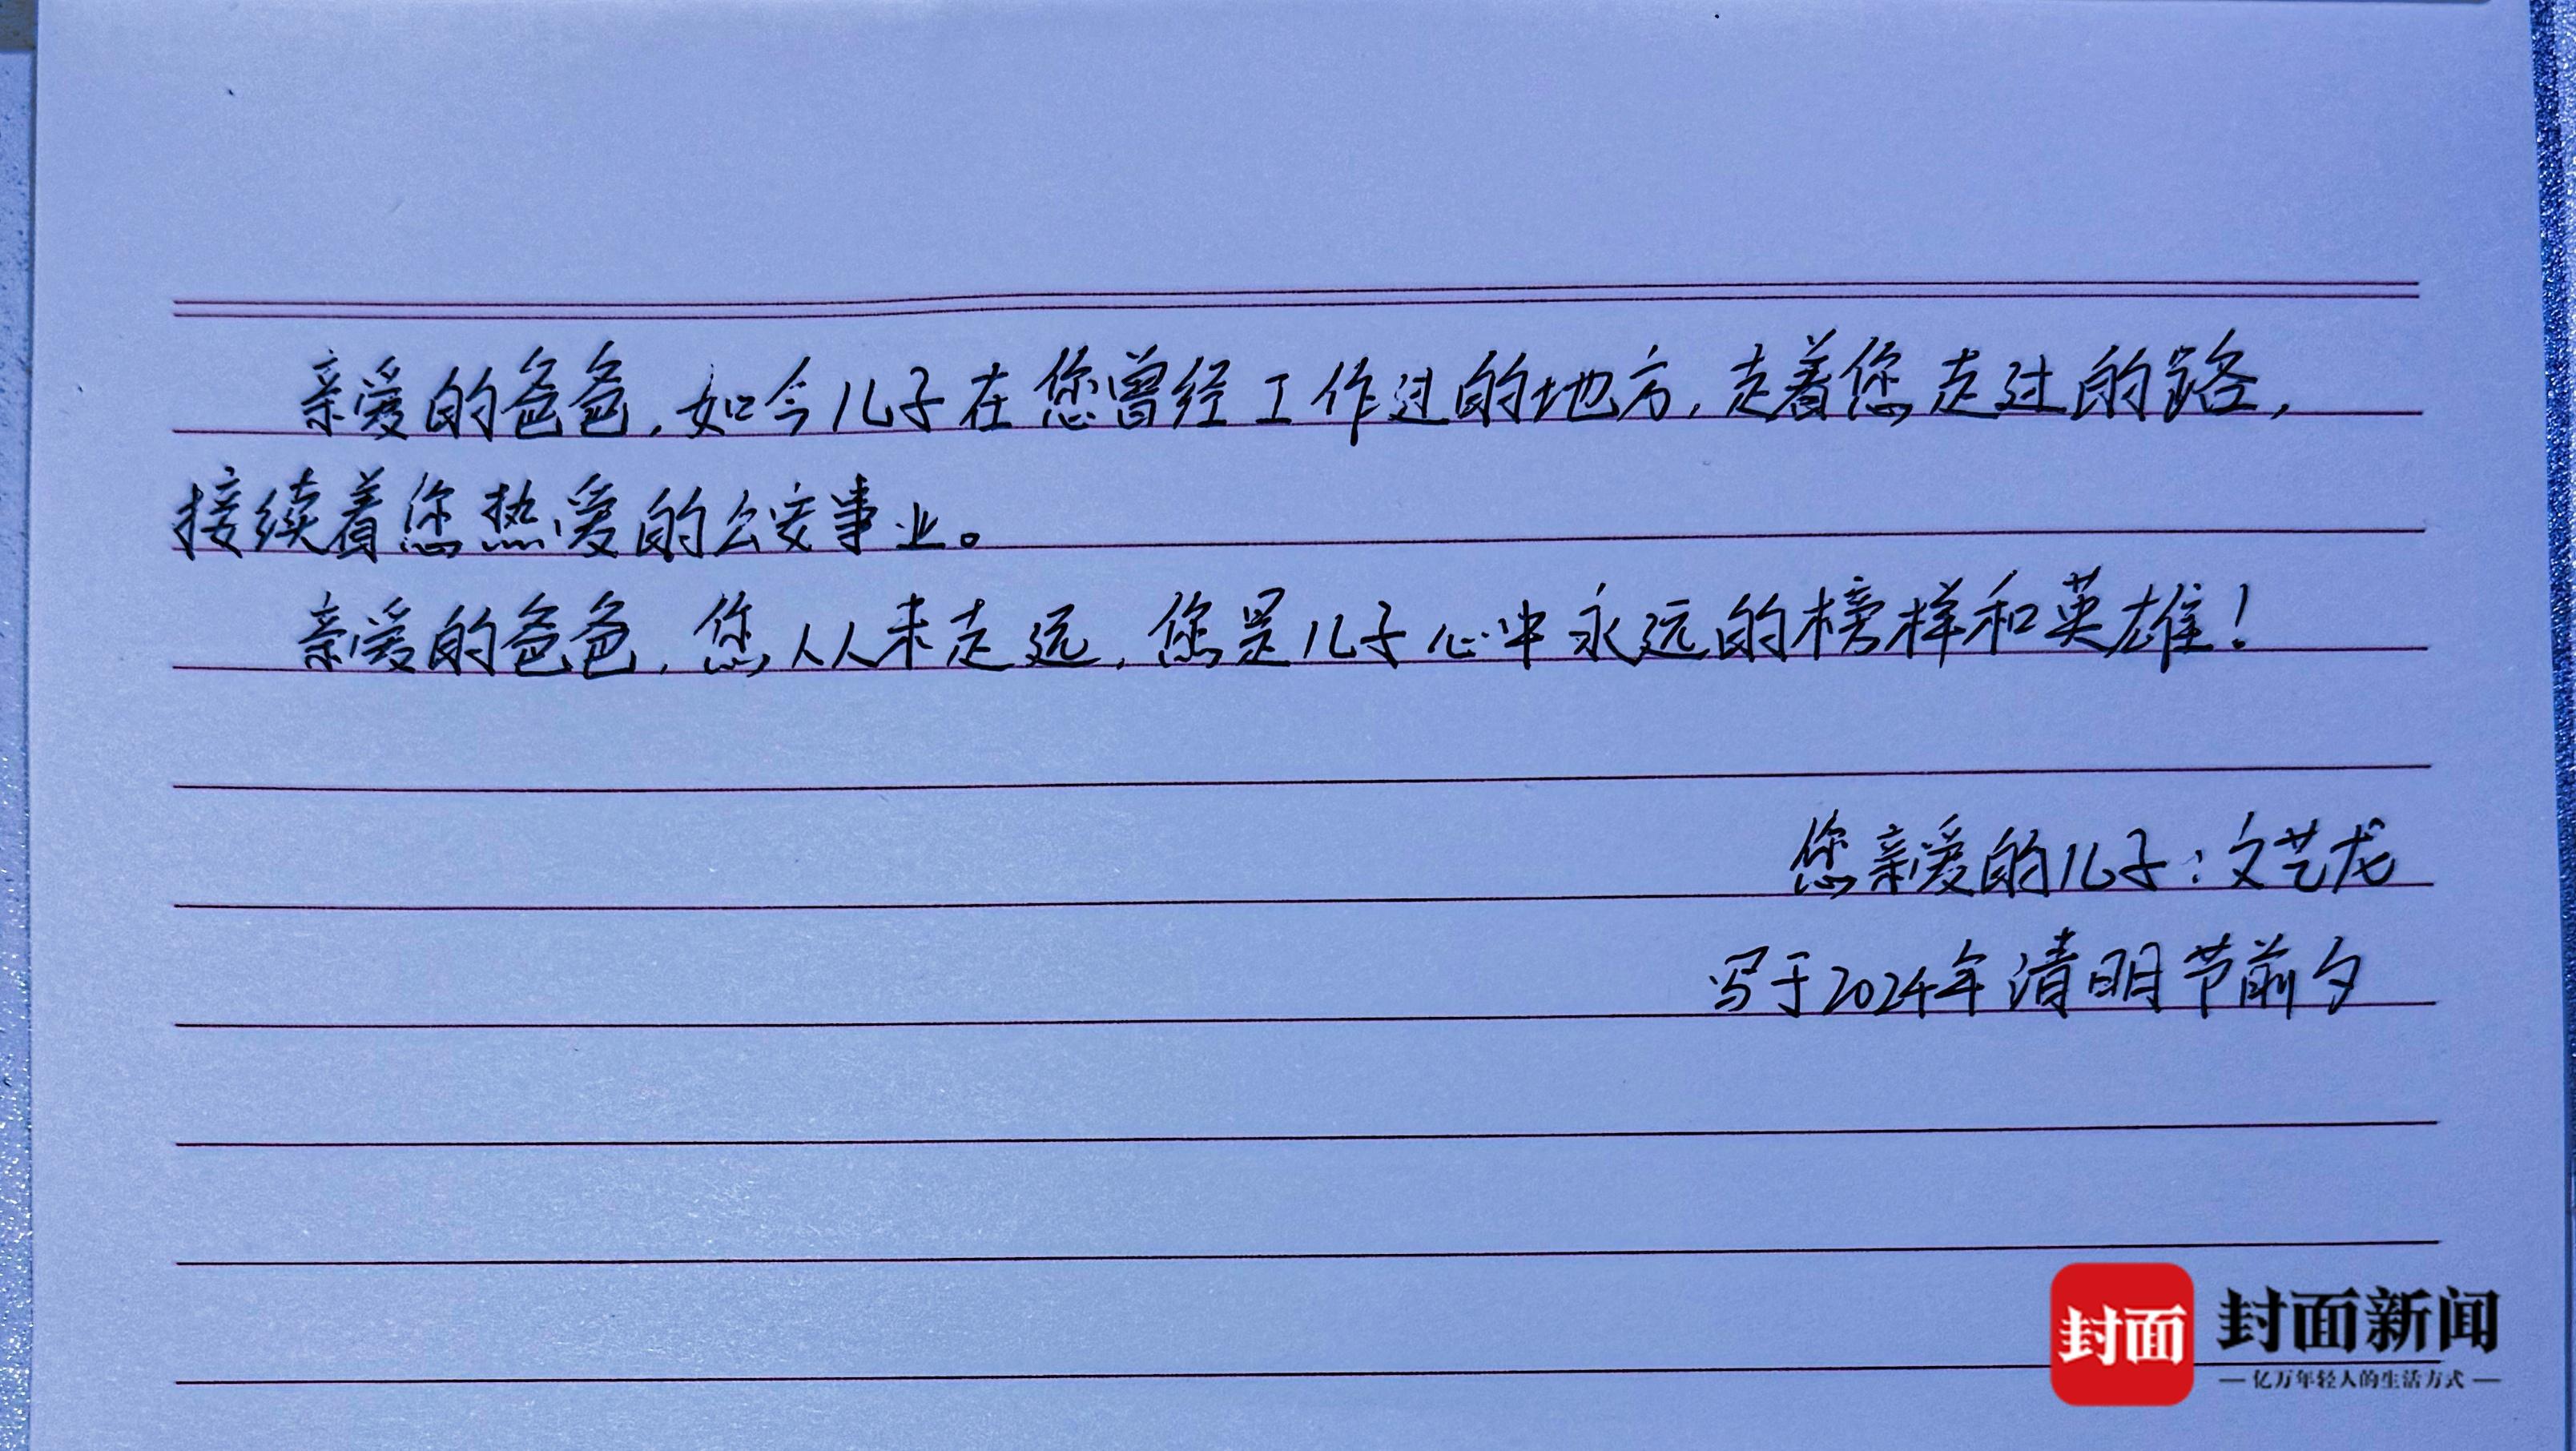 亲爱的爸爸，如今儿子在您曾经工作过的地方，走着您走过的路，
接续着您热爱的公安事业。
亲爱的爸爸，您从未走远，您是儿子心中永远的榜样和英雄！
您亲爱的儿子：文艺龙
写于2024年清明节前夕
封面
封面新闻
亿万年轻人的生活方式